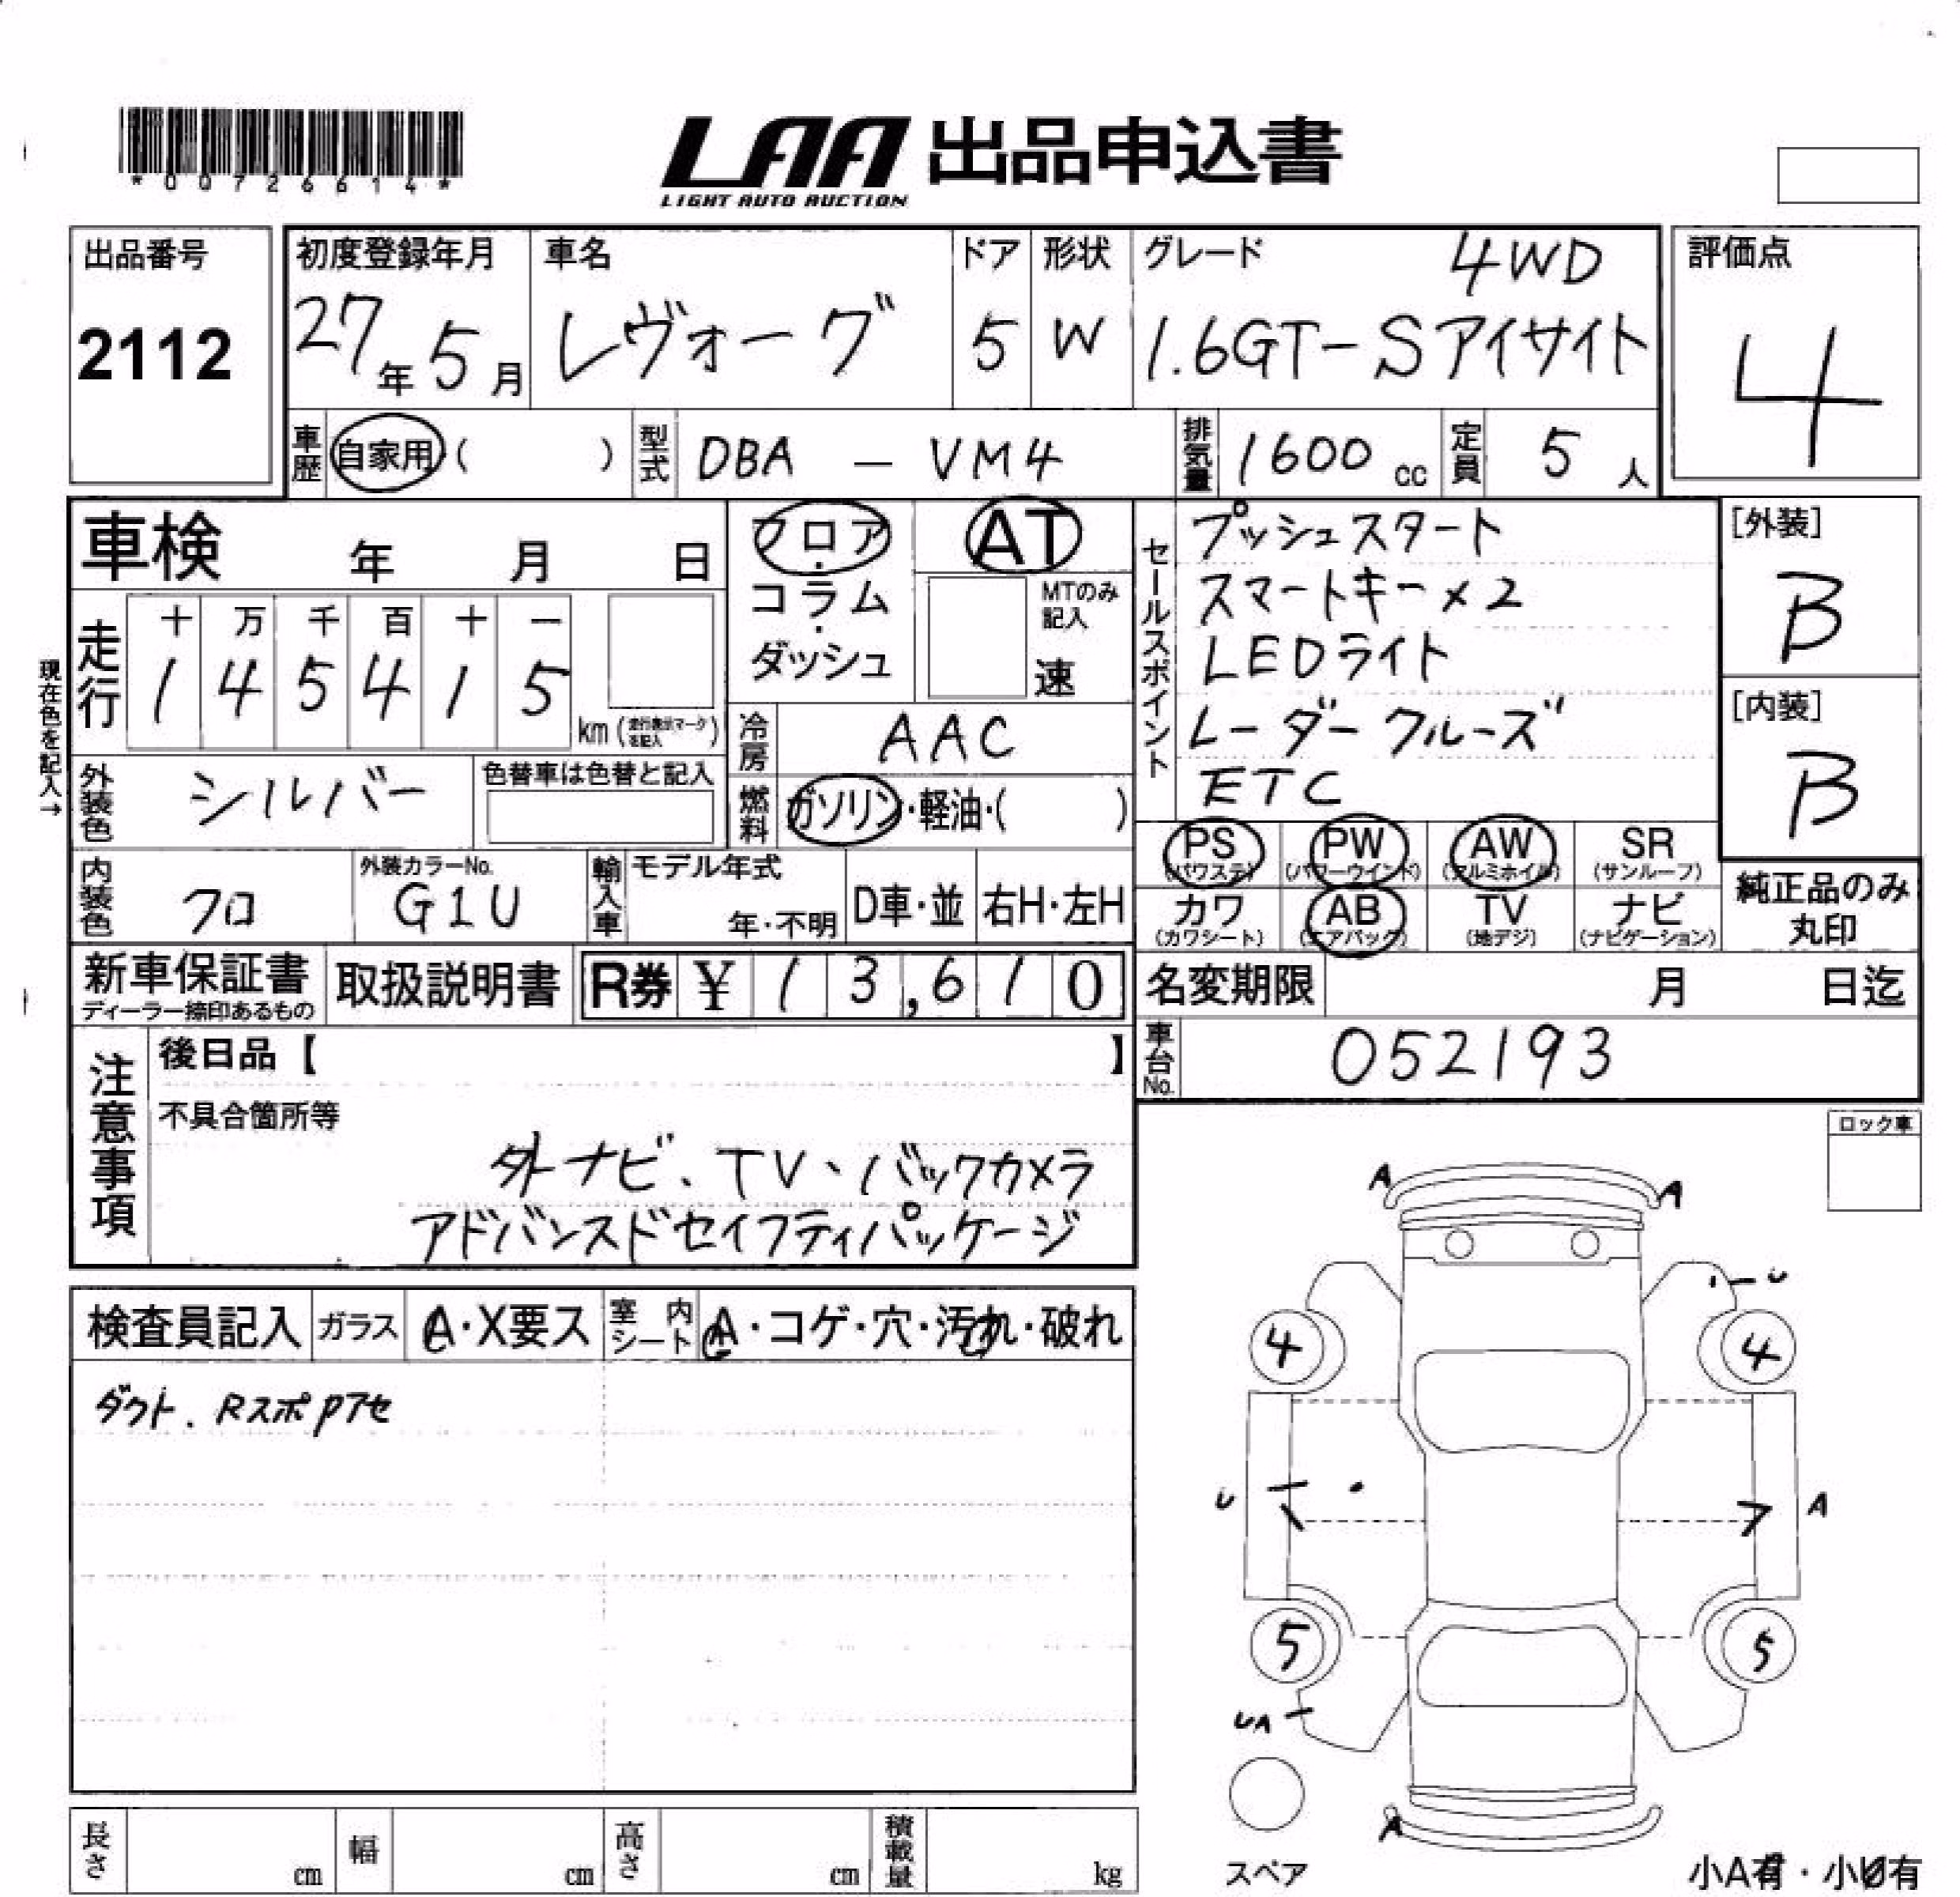 *00726614*
LAA 出品申込書
LIGHT AUTO AUCTION
出品番号
2112
初度登録年月
27年5月
車名
レヴォーグ
ドア
5
形状
W
グレード 4WD
1.6GT-Sアイサイト
評価点
4
車歴 自家用( )
型式 DBA - VM4
排気量 1600 cc
定員 5 人
車検 年 月 日
走行
十 万 千 百 十 一
1 4 5 4 1 5
km(走行表示マークを記入)
現在色を記入→
外装色 シルバー
色替車は色替と記入
内装色 クロ
外装カラーNo.
G1U
輸入車
モデル年式
年・不明
D車・並
右H・左H
フロア・コラム・ダッシュ
AT
MTのみ記入
速
冷房 AAC
燃料 ガソリン・軽油・( )
セールスポイント
プッシュスタート
スマートキー×2
LEDライト
レーダークルーズ
ETC
[外装]
B
[内装]
B
PS (パワステ)
PW (パワーウインド)
AW (アルミホイル)
SR (サンルーフ)
カワ (カワシート)
AB (エアバック)
TV (地デジ)
ナビ (ナビゲーション)
純正品のみ丸印
新車保証書
ディーラー捺印あるもの
取扱説明書
R券 ¥ 13,610
名変期限 月 日迄
車台No. 052193
注意事項
後日品【 】
不具合箇所等
外ナビ、TV、バックカメラ
アドバンスドセイフティパッケージ
ロック車
検査員記入
ガラス A・X要ス
室内シート A・コゲ・穴・汚れ・破れ
ダクト、RスポPアセ
A A
U
4 4
U A
5 5
UA
A
スペア
小A有・小U有
長さ cm
幅 cm
高さ cm
積載量 kg